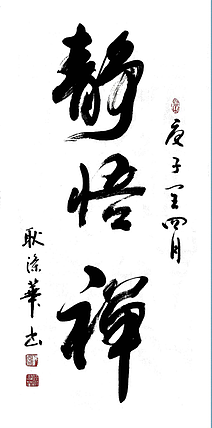 庚子年四月
静悟禪
耿涤華书